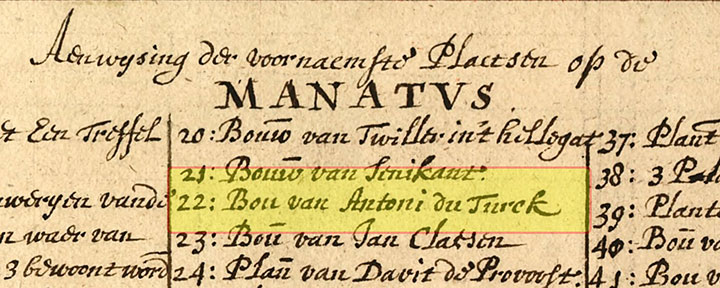 Aenwysing der voornaemste Plaetsen op de
MANATVS
et Een Treffel
20: Bouw van Twiller in't hellegat
37: Plant
21: Bouw van Senikant.
38: 3
wergen vande
22: Bou van Antoni du Turck
39: Plant
n waer van
23: Bou van Jan Claesen
40: Bou va
3 bewoont word
24: Plan van Davit de Provoost.
41: Bou v